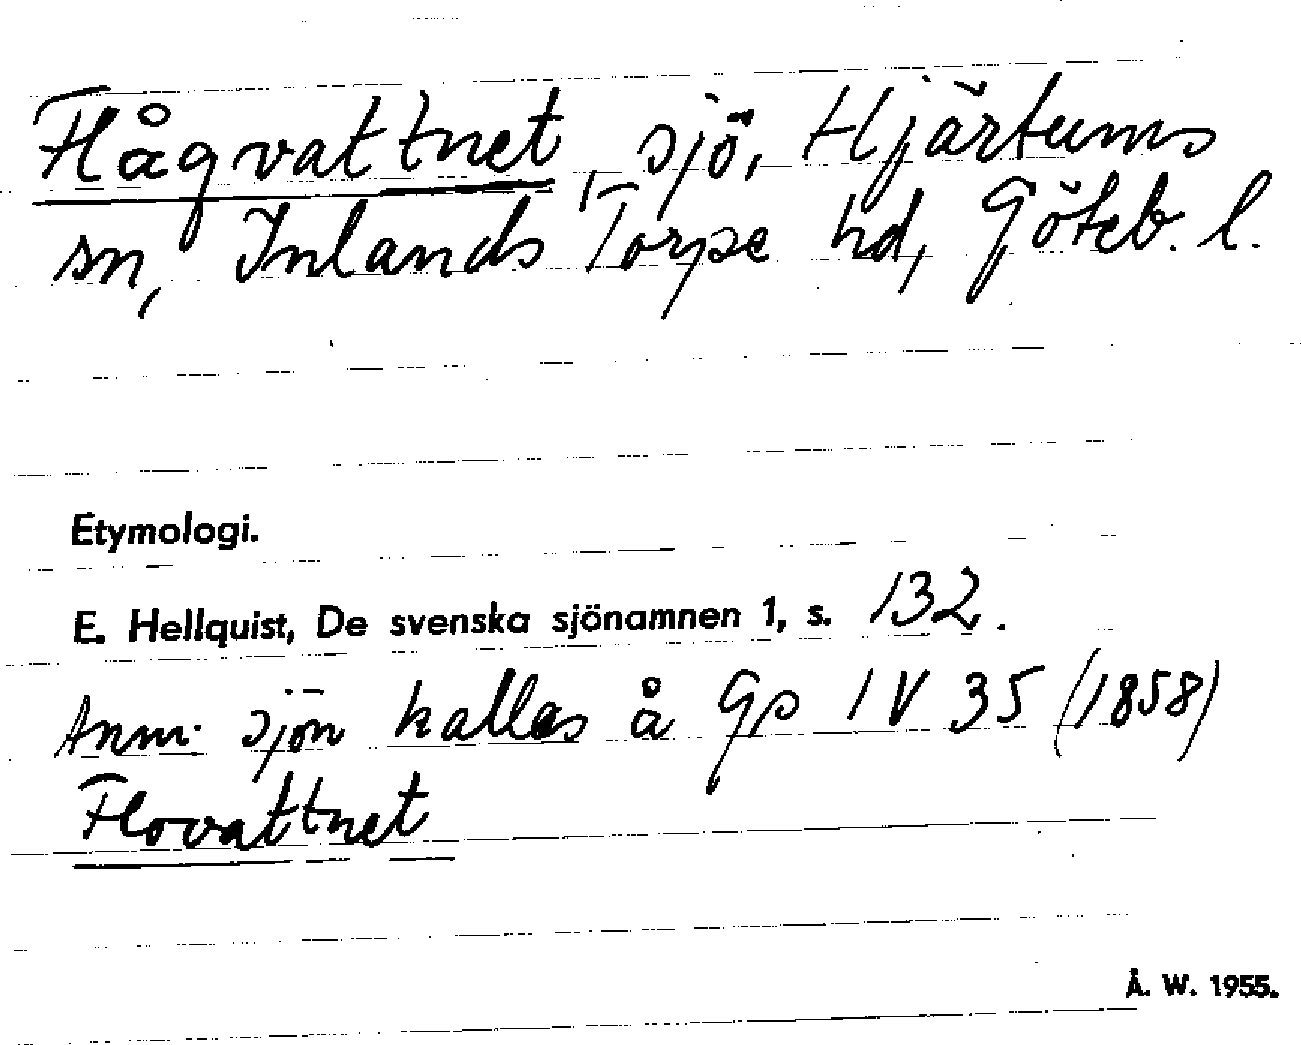 Flågvattnet, sjö, Hjärtums
sn, Inlands Torpe hd, Göteb. l.
Etymologi.
E. Hellquist, De svenska sjönamnen 1, s. 132.
Anm. sjön kallas å Gs IV 35 (1858)
Flovattnet
Å. W. 1955.